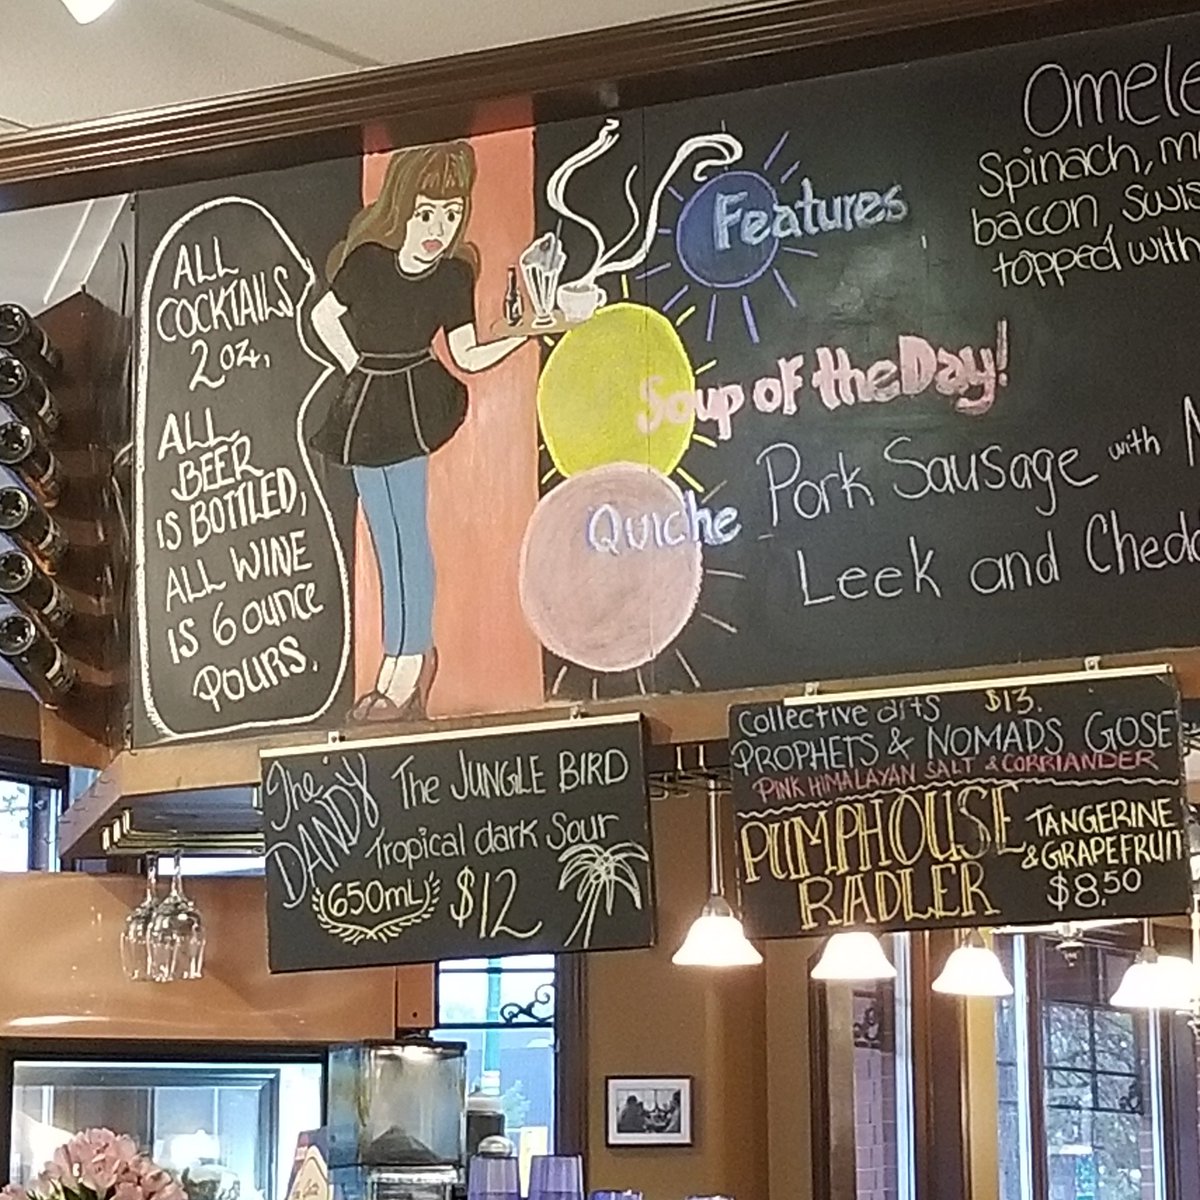 ALL
COCKTAILS
2 oz,
ALL
BEER
IS BOTTLED,
ALL WINE
IS 6 ounce
POURS.
Features
Soup of the Day!
Quiche
Pork Sausage with
Leek and
Spinach,
bacon,
topped with
The DANDY
The JUNGLE BIRD
Tropical dark Sour
650mL $12
Collective arts $13.
PROPHETS & NOMADS GOSE
PINK HIMALAYAN SALT & CORRIANDER
PUMPHOUSE
RADLER
TANGERINE
& GRAPEFRUIT
$8.50